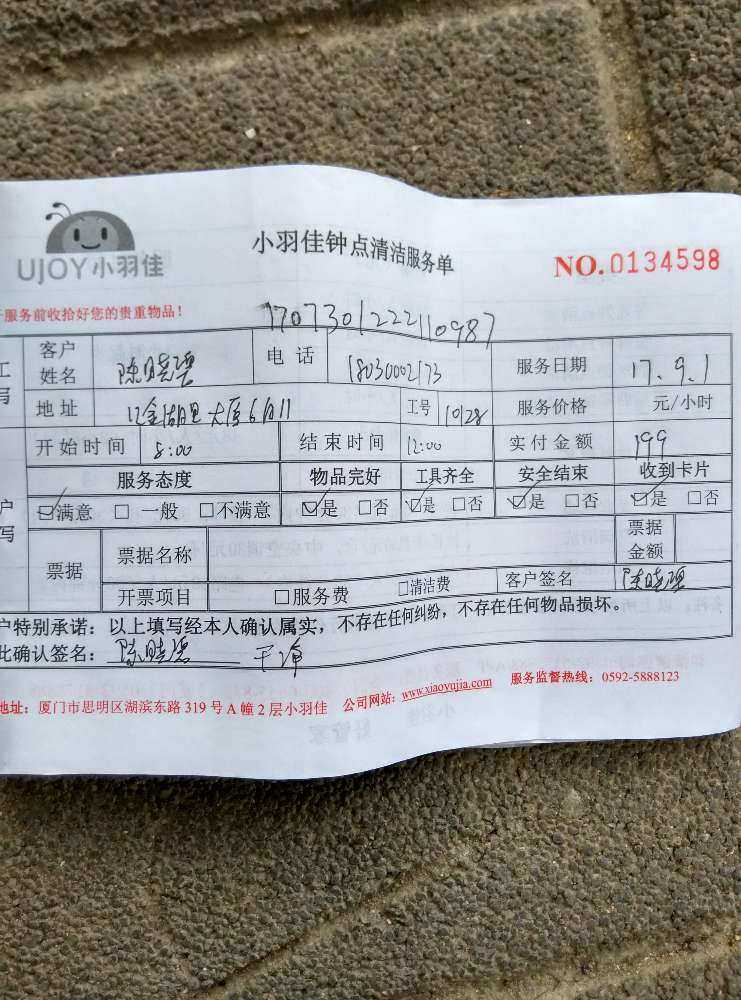 UJOY小羽佳
小羽佳钟点清洁服务单
NO.0134598
服务前收拾好您的贵重物品！
1707301222110987
客户姓名 陈晓 电话 18030002173 服务日期 17.9.1
地址 金湖 大厦 工号 1028 服务价格 元/小时
开始时间 8:00 结束时间 12:00 实付金额 199
服务态度 物品完好 工具齐全 安全结束 收到卡片
☑满意 □一般 □不满意 ☑是 □否 ☑是 □否 ☑是 □否 ☑是 □否
票据 票据名称 票据金额
开票项目 □服务费 □清洁费 客户签名 陈晓
户特别承诺：以上填写经本人确认属实，不存在任何纠纷，不存在任何物品损坏。
此确认签名：陈晓 干净
地址：厦门市思明区湖滨东路319号A幢2层小羽佳 公司网站：www.xiaoyujia.com 服务监督热线：0592-5888123